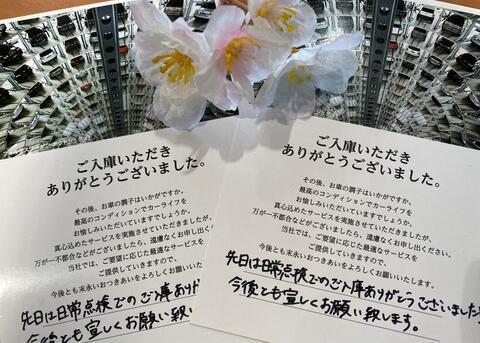 ご入庫いただき
ありがとうございました。
その後、お車の調子はいかがですか。
最高のコンディションでカーライフを
お愉しみいただいていますでしょうか。
真心込めたサービスを実施させていただきましたが、
万が一不都合などがございましたら、遠慮なくお申し出ください。
当社では、ご要望に応じた最適なサービスを
ご提供していきますので、
今後とも末永いおつきあいをよろしくお願い
先日は日常点検でのご入庫ありが
今後とも宜しくお願い致し
ご入庫いただき
ありがとうございました。
その後、お車の調子はいかがですか。
最高のコンディションでカーライフを
お愉しみいただいていますでしょうか。
真心込めたサービスを実施させていただきましたが、
万が一不都合などがございましたら、遠慮なくお申し出ください。
当社では、ご要望に応じた最適なサービスを
ご提供していきますので、
今後とも末永いおつきあいをよろしくお願いいたします。
先日は日常点検でのご入庫ありがとうございました
今後とも宜しくお願い致します。